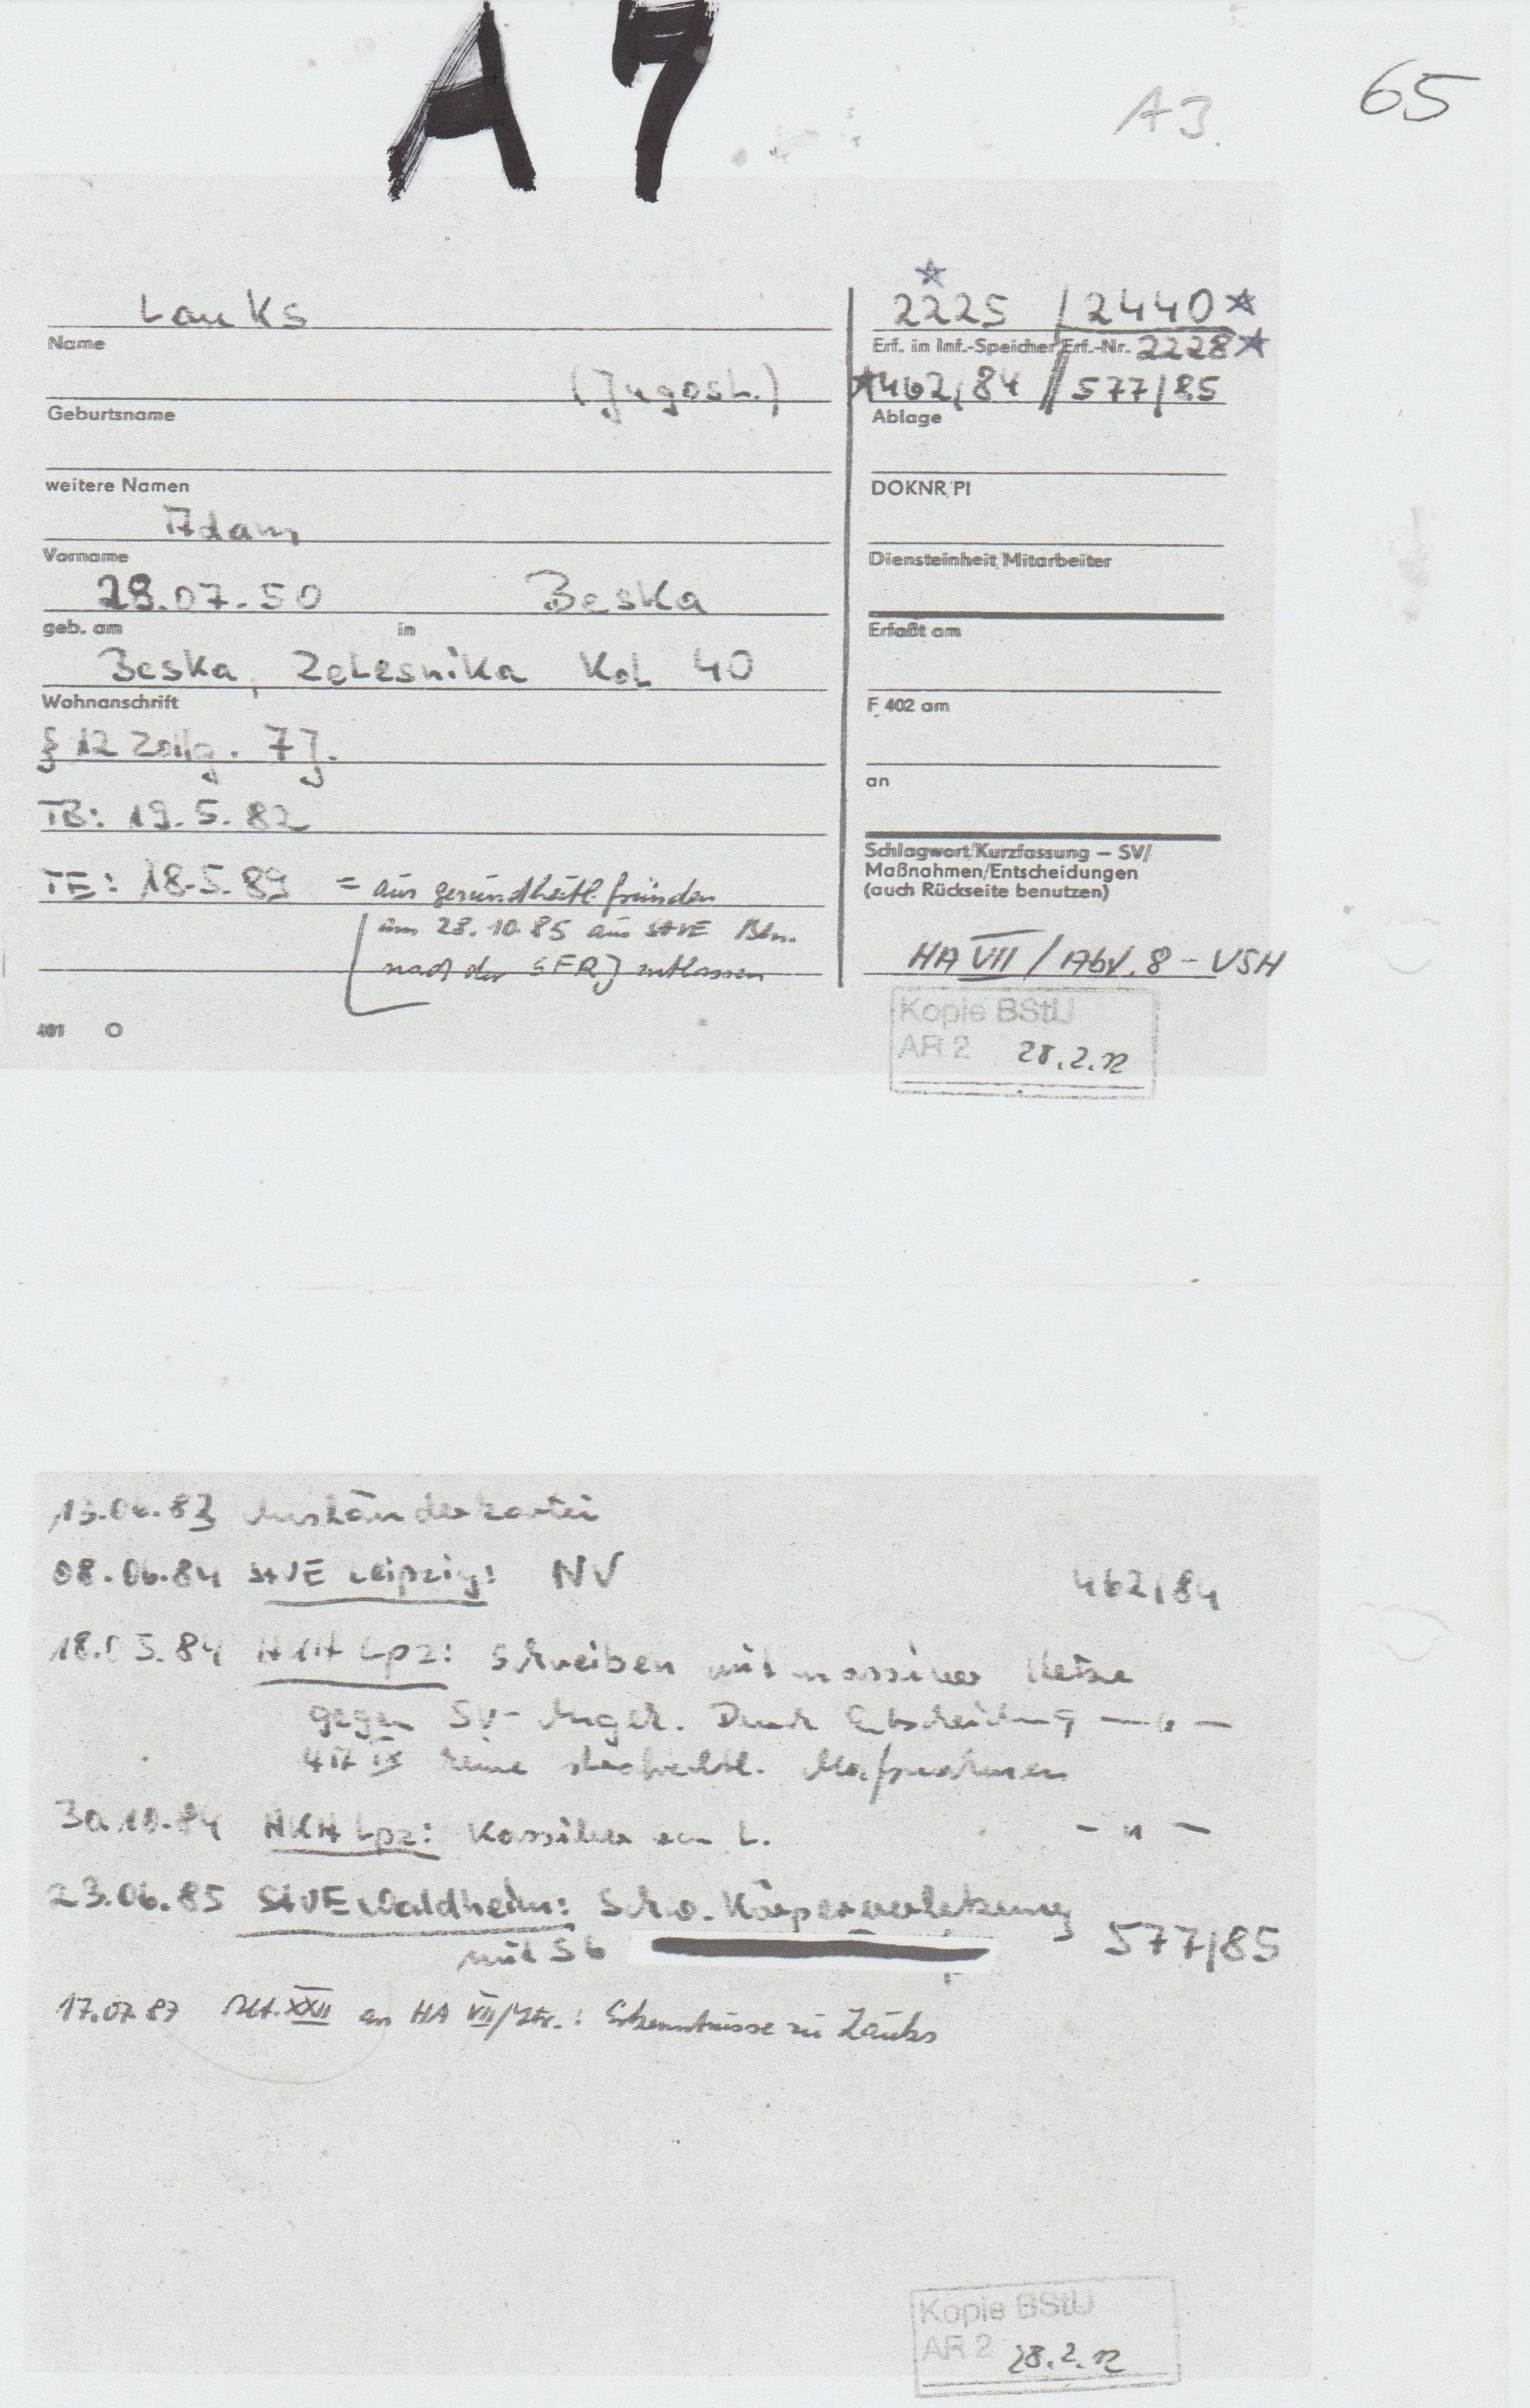 A 7
A3.
65
Lauks
Name
(Jugosl.)
Geburtsname
weitere Namen
Adam
Vorname
28.07.50 Beska
geb. am in
Beska, Zelesnika Kol 40
Wohnanschrift
§ 12 Zollg. 7 J.
TB: 19.5.82
TE: 18.5.89 = aus gesundheitl. Gründen
am 28.10.85 aus StVE Bln.
nach der SFRJ entlassen
401 O
2225 / 2440
Erf. im Inf.-Speicher Erf.-Nr. 2228
462/84 // 577/85
Ablage
DOKNR/PI
Diensteinheit/Mitarbeiter
Erfaßt am
F 402 am
an
Schlagwort/Kurzfassung – SV/
Maßnahmen/Entscheidungen
(auch Rückseite benutzen)
HA VII / Abt. 8 – VSH
Kopie BStU
AR 2 28.2.12
13.06.83 Ausländerkartei
08.06.84 StVE Leipzig: NV 462/84
18.05.84 HKH Lpz: Schreiben mit massiver Hetze
gegen SV-Angeh. Durch Entscheidung — " —
keine strafrechtl. Maßnahmen
30.10.84 HKH Lpz: Kassiber von L. - " -
23.06.85 StVE Waldheim: Schw. Körperverletzung
mit SG 577/85
17.07.87 Abt. XXII an HA VII/ : Erkenntnisse zu Lauks
Kopie BStU
AR 2 28.2.12